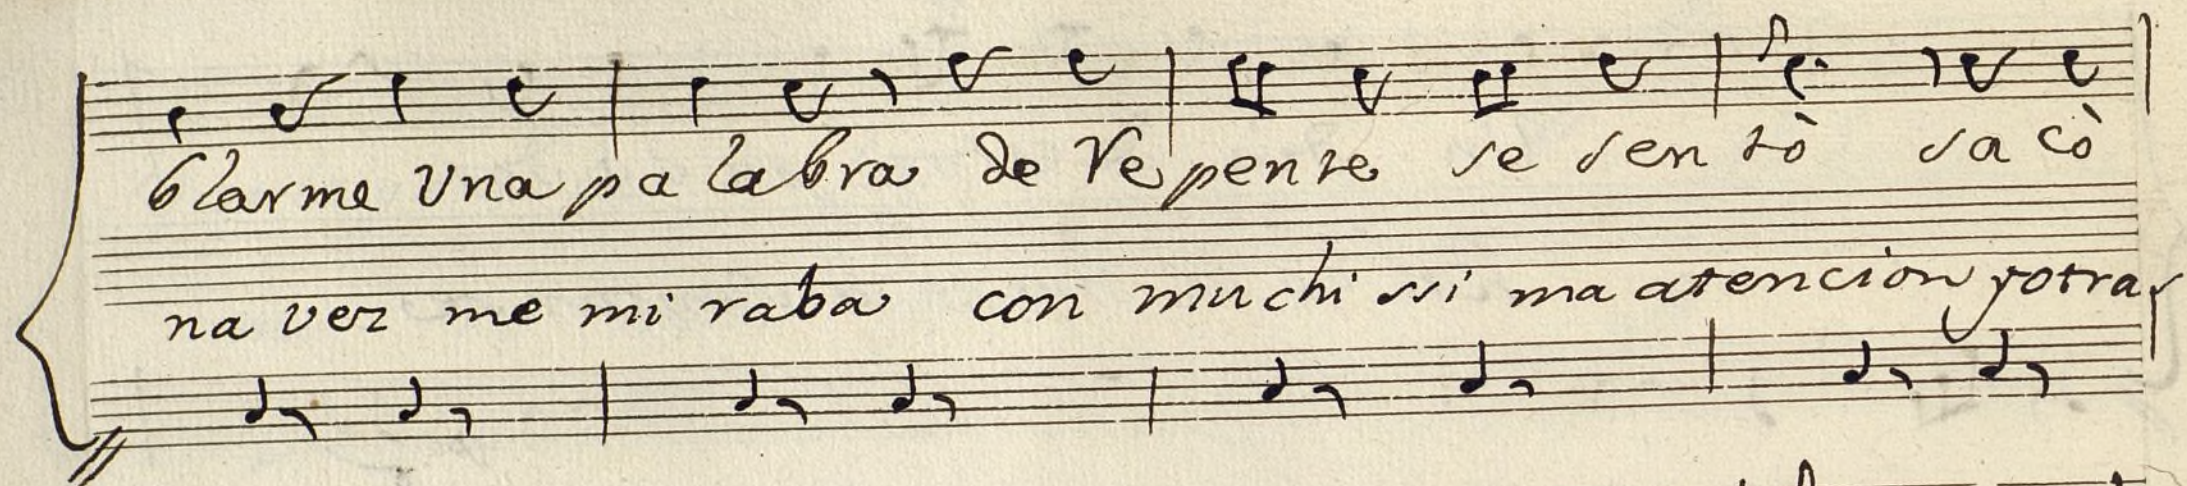 blarme Una pa labra de Repente se sen tò sa cò
na vez me mi raba con muchi ssi ma atencion y otra